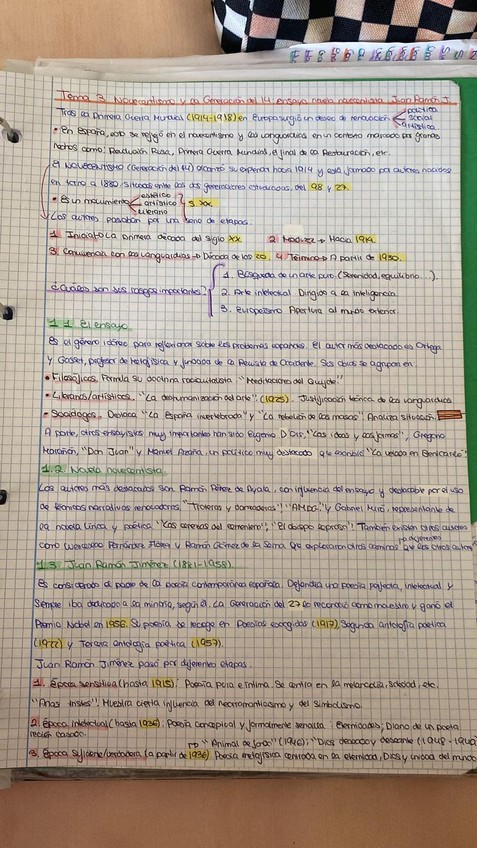 Tema 3. Novecentismo y la Generación del 14. ensayo novela novecentista. Juan Ramón J.
Tras la Primera Guerra Mundial (1914-1918) en Europa surgió un deseo de renovación política social artística
• En España, esto se reflejó en el novecentismo y las vanguardias en un contexto marcado por grandes
hechos como: Revolución Rusa, Primera Guerra Mundial, el final de la Restauración, etc.
El NOVECENTISMO (Generación del 14) alcanzó su esplendor hacia 1914 y está formado por autores nacidos
en torno a 1880 situados entre las dos generaciones estudiadas, del 98 y 27.
• Es un movimiento estético artístico literario S. XX
Los autores pasaban por una serie de etapas.
1. Inicio → La primera década del siglo XX 2. Madurez → Hacia 1914
3. Convivencia con las vanguardias → Década de los 20. 4. Término → A partir de 1930.
¿Cuáles son sus rasgos importantes?
1. Búsqueda de un arte puro (Serenidad, equilibrio...).
2. Arte intelectual Dirigido a la inteligencia
3. Europeísmo Apertura al mundo exterior.
1.1. El ensayo
Es el género idóneo para reflexionar sobre los problemas españoles. El autor más destacado es Ortega
y Gasset, profesor de Metafísica y fundador de la Revista de Occidente. Sus obras se agrupan en:
• Filosóficos. Formula su doctrina raciovitalista "Meditaciones del Quijote"
• Literarios/artísticos. "La deshumanización del arte" (1925). Justificación teórica de las vanguardias
• Sociólogos. Destaca "La España invertebrada" y "La rebelión de las masas" Analiza situación
A parte, otros ensayistas muy importantes han sido Eugenio D'Ors, "Las ideas y las formas", Gregorio
Marañón, "Don Juan" y Manuel Azaña, un político muy destacado que escribió "La velada en Benicarló"
1.2. Novela novecentista.
Los autores más destacados son Ramón Pérez de Ayala, con influencia del ensayo y destacable por el uso
de técnicas narrativas renovadoras, "Troteras y danzaderas", "AMDG" y Gabriel Miró, representante de
la novela lírica y poética "Las cerezas del cementerio", "El obispo leproso". También existen otros autores
como Wenceslao Fernández Flórez y Ramón Gómez de la Serna, que exploraron otros caminos diferentes que los otros autores
1.3. Juan Ramón Jiménez (1881-1958).
Es considerado el padre de la poesía contemporánea española. Defendía una poesía perfecta, intelectual y
siempre iba dedicado a la minoría, según él. La Generación del 27 lo recordó como maestro y ganó el
Premio Nobel en 1956. Su poesía se recoge en Poesías escogidas (1917), Segunda antología poética
(1922) y Tercera antología poética (1957).
Juan Ramón Jiménez pasó por diferentes etapas.
1. Época sensitiva (hasta 1915): Poesía pura e íntima. Se centra en la melancolía, soledad, etc.
"Arias tristes". Muestra cierta influencia del neorromanticismo y del Simbolismo.
2. Época intelectual (hasta 1936): Poesía conceptual y formalmente sencilla: Eternidades; Diario de un poeta
recién casado.
→ "Animal de fondo" (1946); "Dios deseado y deseante (1948-1949)
3. Época suficiente/verdadera (a partir de 1936) Poesía metafísica centrada en la eternidad, Dios y unidad del mundo